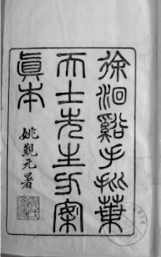 徐洄谿手批葉
天士先生方案
眞本
姚覲元署